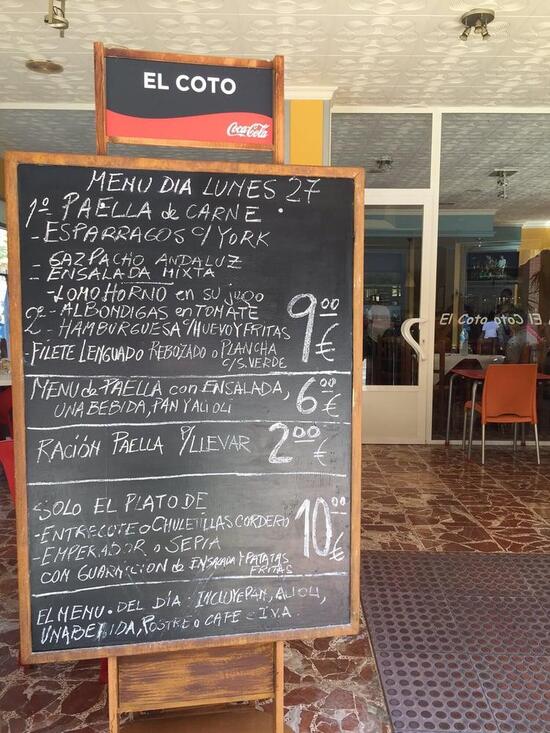 EL COTO
Coca-Cola
MENU DIA LUNES 27
1º PAELLA de CARNE.
- ESPARRAGOS C/ YORK
- GAZPACHO ANDALUZ
- ENSALADA MIXTA
- LOMO HORNIO en su jugo
2º - ALBONDIGAS en TOMATE
- HAMBURGUESA C/HUEVO Y FRITAS
- FILETE LENGUADO REBOZADO o PLANCHA
C/S.VERDE
9,00 €
MENU de PAELLA con ENSALADA,
UNA BEBIDA, PAN Y ALIOLI
6,00 €
RACIÓN PAELLA P/LLEVAR
2,00 €
SOLO EL PLATO DE
- ENTRECOTE o CHULETILLAS CORDERO
EMPERADOR o SEPIA
CON GUARNICION de ENSALADA Y PATATAS
FRITAS
10,00 €
EL MENU. DEL DÍA. INCLUYE PAN, ALIOLI,
UNA BEBIDA, POSTRE o CAFE e I.V.A.
El Coto